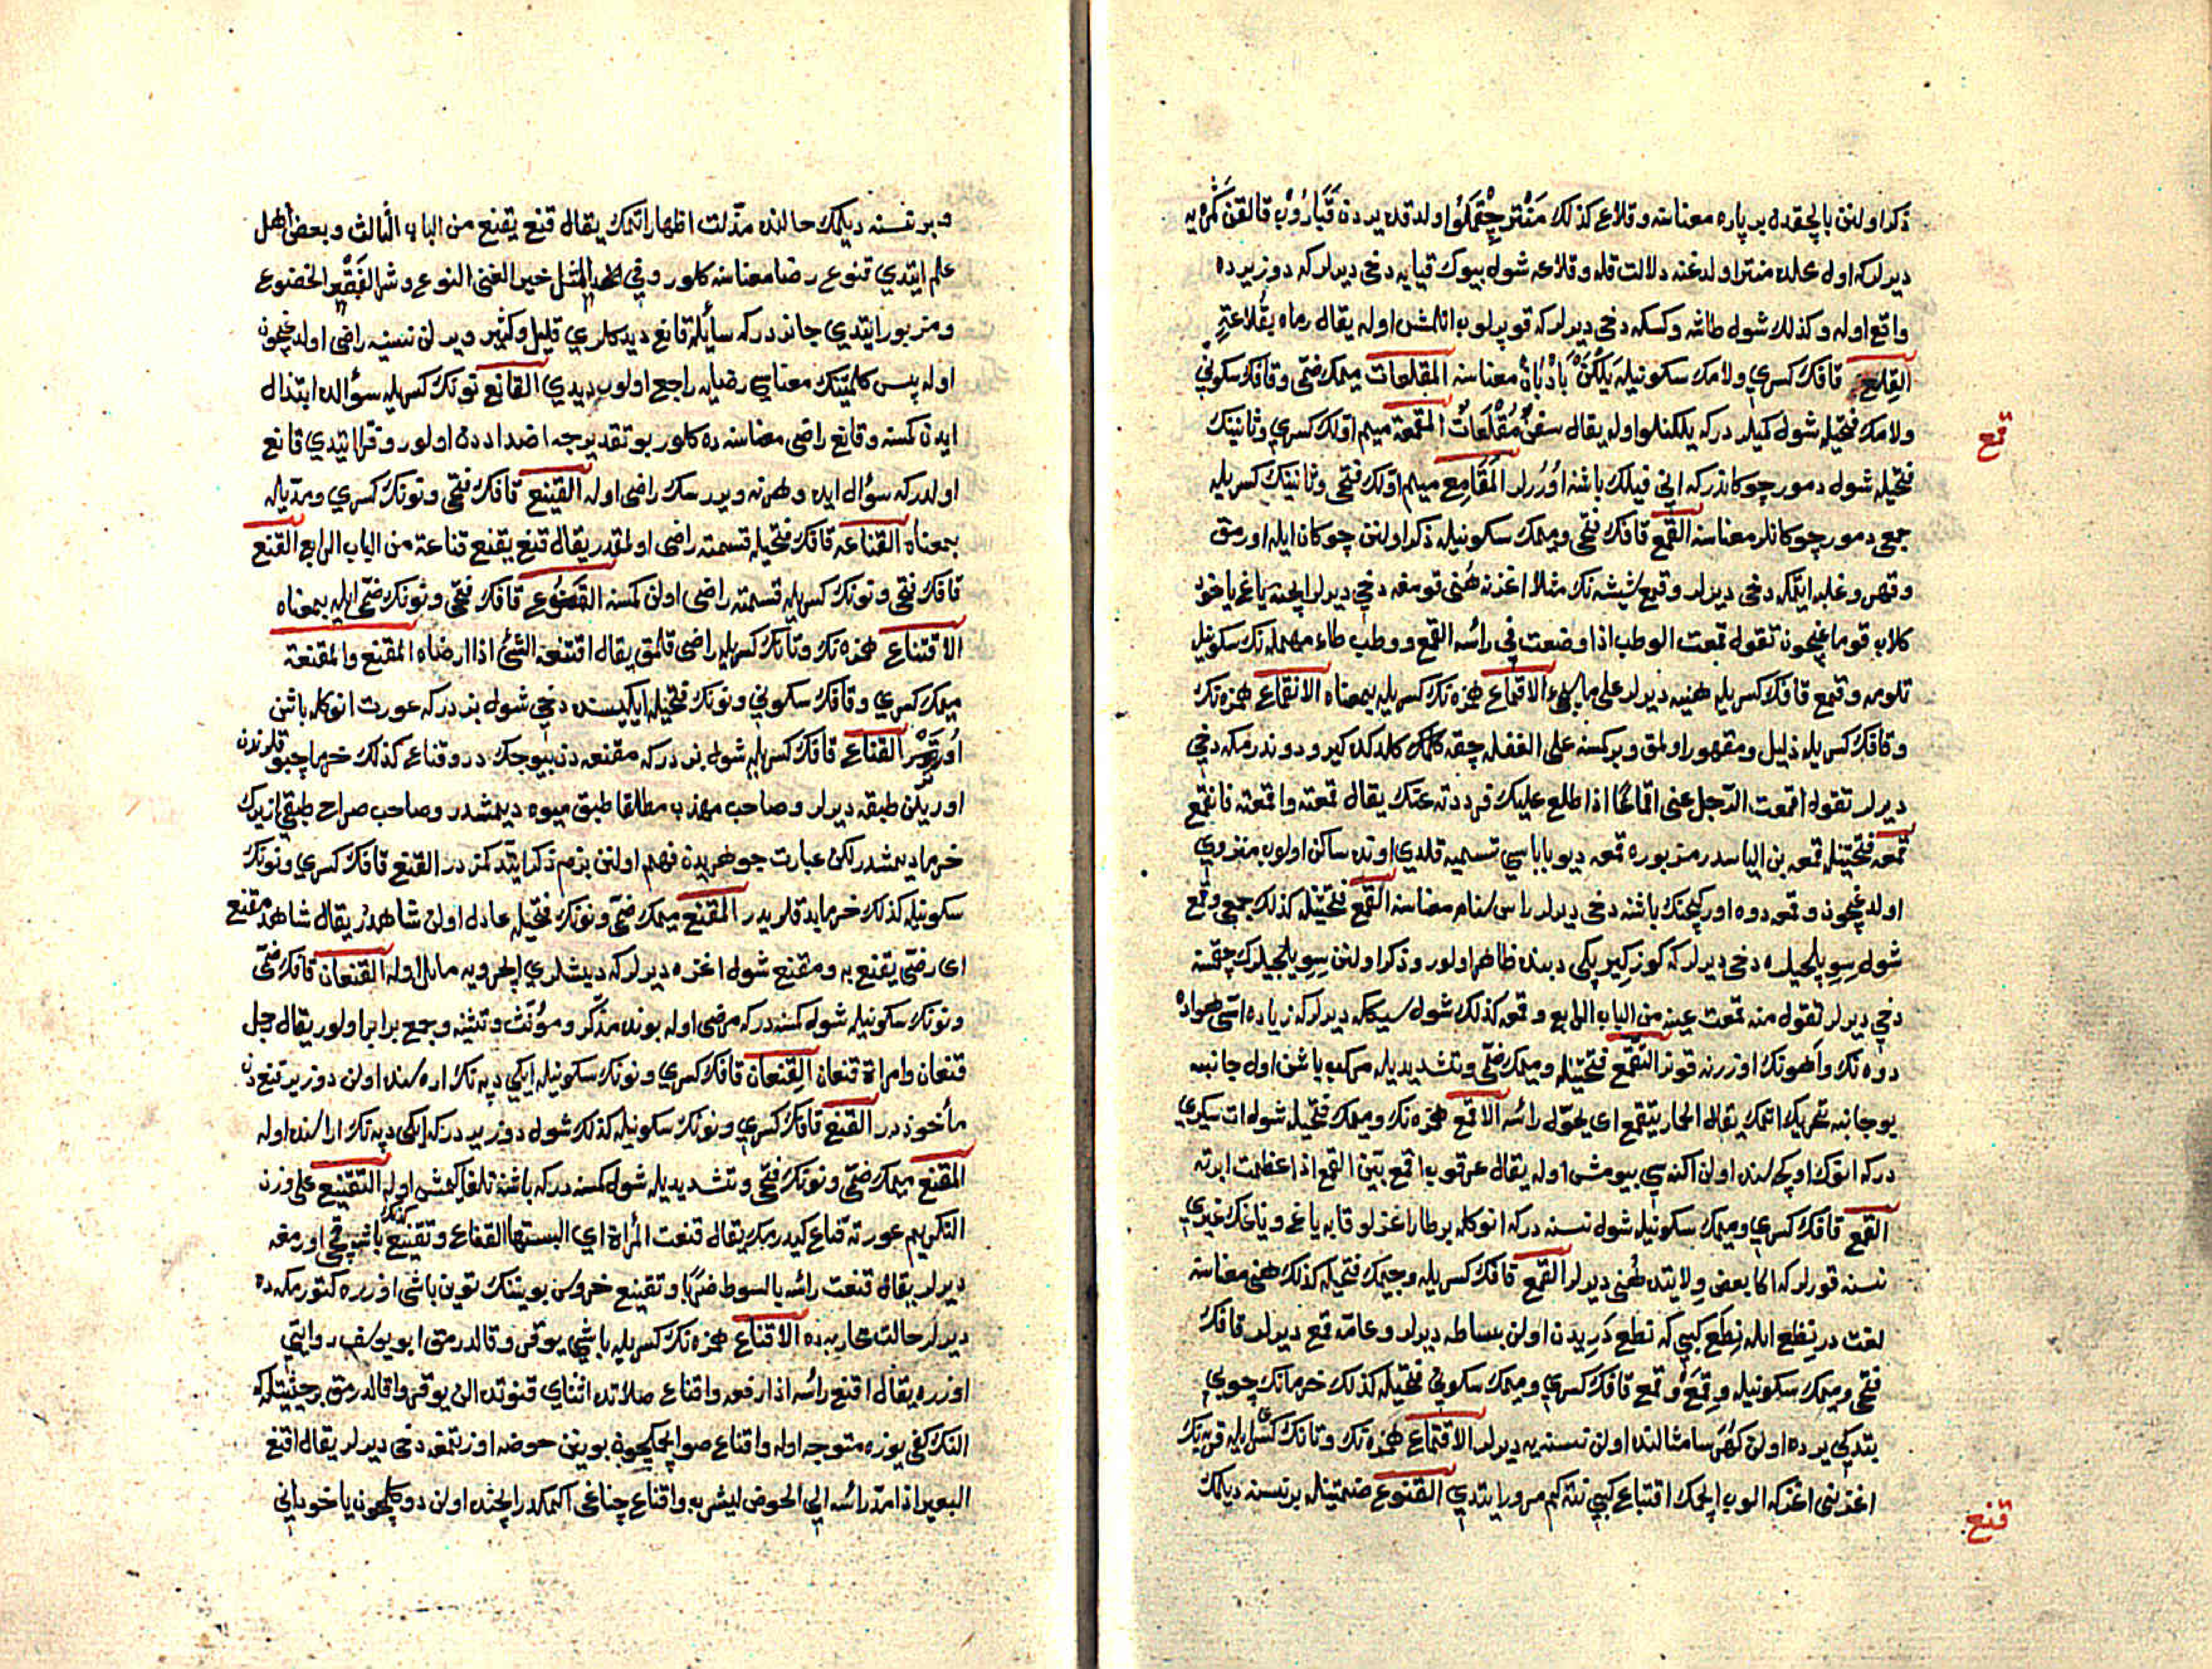 ذكر اولنن بالچقدن بر پاره معناسنه وقلاع كذلك مَنْتَر چِقْمَكلُو اولدقده يردن قَبَارُوْب قالقن كَمَرْيه
ديرلر كه اول محلده منتر اولدغنه دلالت قله وقلاعه شول بيوك قيايه دخى ديرلر كه دوز يرده
واقع اوله وكذلك شول طاشه وكسكه دخى ديرلر كه قوپرلوب اتلمش اوله يقال رماه بقُلاعةٍ
القِلع قافك كسرى ولامك سكونيله يَلْكَنْ بَادْبَانْ معناسنه المقلعات ميمك ضمّى وقافك سكونى
ولامك فتحيله شول كميلر در كه يلكنلو اوله يقال سفنٌ مُقْلَعَاتٌ المقمعة ميم اولك كسرى وثانينك
قمع
فتحيله شول دمور چوكاندر كه انى فيلك باشنه اُوْرُرلر المَقَامِع ميم اولك فتحى وثانينك كسريله
جمعى دمور چوكانلر معناسنه القمع قافك فتحى وميمك سكونيله ذكر اولنن چوكان ايله اورمق
وقهر وغلبه ايتمكه دخى ديرلر وقمع شيشه نك مثلا اغزنه هُنى قومغه دخى ديرلر ايچنه ياغ ياخود
كلاب قوماغيچون تقول قمعت الوطب اذا وضعت فى رأسه القمع ووطب طاء مهمله نك سكونيله
تلومه وقمع قافك كسريله هنيه ديرلر على ما يجىء الاقماع همزه نك كسريله بمعناه الانقماع همزه نك
وقافك كسريله ذليل ومقهور اولمق وبر كمسنه على الغفله چقه كلمك كلدكده كيرو دوندرمكه دخى
ديرلر تقول اقمعت الرّجل عنى اقماعًا اذا اطلع عليك فرددته عنك يقال قمعته واقمعته فانقمع
قمعه فتحتينله قمعه بن الياسدر مزبوره قمعه ديو باباسى تسميه قلدى اونده ساكن اولوب منزوى
اولدغيچون وقمعه دوه اوركجنك باشنه دخى ديرلر راس سنام معناسنه القمع فتحتينله كذلك جمعى وقمع
شول سِوِيلجيله دخى ديرلر كه كوز كيرپكى دبنده ظاهر اولور وذكر اولنن سِوِيلجيلرك چقمسنه
دخى ديرلر تقول منه قمعت عينه من الباب الرابع وقمعه كذلك شول سيكه ديرلر كه زياده اسّى هواده
دوه نك واهونك اوزرينه قونر التّقمّع فتحتينله وميمك ضمّى وتشديديله مركب باشن اول جانبه
بو جانبه تحريك اتمك يقال الحمار يتقمع اى يحرّك رأسه الاقمع همزه نك وميمك فتحيله شول ات سكرى
در كه انوك اوكجه سنده اولن اكنه سى بيومش اوله يقال عرقوب اقمع بيّن القمع اذا عظمت ابرته
القمع قافك كسرى وميمك سكونيله شول نسنه در كه انوكله بر طار اغزلو قابه ياغ و ياغك غيرى
نسنه قورلر كه اكا بعض ولايتده هُنى ديرلر القمع قافك كسريله وجيمك فتحيله كذلك هنى معناسنه
لغت در نِطع ايله نِطَع كبى كه نطع دَرِيدن اولن بساطه ديرلر وعامه قمع ديرلر قافك
فتحى وميمك سكونيله وقِمَع و قمع قافك كسرى وميمك سكونى فتحيله كذلك خرمانك چوبى
بتدكى يرده اولن كُهَرسا مثالنده اولن نسنه يه ديرلر الاقتماع همزه نك وتانك كسريله قربه نك
اغزنى اغزكه الوب ايچمك اقتباع كبى نته كم مرور ايتدى القنوع ضمتينله بر نسنه ديلمك
قنع
و بر نسنه ديلمك حالنده مذلت اظهار اتمك يقال قنع يقنع من الباب الثالث وبعض اهل
علم ايتدى قنوع رضا معناسنه كلور وفى المثل خير الغنى القنوع وشر الفَقْر الخضوع
ومزبور ايتدى جائزدر كه سائله قانع ديدكلرى قليل وكثير ويرلن نسنيه راضى اولدغيچون
اوله پس كلمتينك معناسى رضايه راجع اولوب ديدى القانع نونك كسريله سؤالده ابتذال
ايدن كمسنه وقانع راضى معناسنه ده كلور بو تقديرجه اضداددن اولور وفرّا ايتدى قانع
اولدر كه سؤال ايده وهر نه ويرسك راضى اوله القنيع قافك فتحى ونونك كسرى ومدّيله
بمعناه القناعه قافك فتحيله قسمته راضى اولمقدر يقال قنع يقنع قناعة من الباب الرابع القنع
قافك فتحى ونونك كسريله قسمته راضى اولن كمسنه القنوع قافك فتحى ونونك ضمّى ايله بمعناه
الاقتناع همزه نك وتانك كسريله راضى قلمق يقال اقتنعه الشئ اذا ارضاه المقنع والمقنعة
ميمك كسرى وقافك سكونى ونونك فتحيله ايكيسنه دخى شول بزدر كه عورت انوكله باشن
اُورتر القناع قافك كسريله شول بزدر كه مقنعه دن بيوجك در وقناع كذلك خرما چبوقلرندن
اوريلن طبقه ديرلر وصاحب مهذب مطلقا طبق ميوه ديمشدر وصاحب صراح طبقى ازبرك
خرما ديمشدر لكن عبارت جوهريدن فهم اولنن بزم ذكر ايتدكمز در القنع قافك كسرى ونونك
سكونيله كذلك خرمايه قلريدر المقنع ميمك ضمّى ونونك فتحيله عادل اولن شاهددر يقال شاهد مقنع
اى رضًى يقنع به ومقنع شول اغزه ديرلر كه ديشلرى ايچرويه مائل اوله القنعان قافك ضمّى
ونونك سكونيله شول كمسنه در كه مرضى اوله بونده مذكّر ومؤنّث وتثنيه وجمع برابر اولور يقال رجل
قنعان وامراة قنعان القِنعان قافك كسرى ونونك سكونيله ايكى دپه نك اره سنده اولن دوز ير قنع دن
مأخوذدر القنع قافك كسرى ونونك سكونيله كذلك شول دوز يردر كه ايكى دپه نك اراسنده اوله
المقنع ميمك ضمّى ونونك فتحى وتشديديله شول كمسنه در كه باشنه تلغه كيمش اوله التقنيع على وزن
التكريم عورته قناع كيدرمك يقال قنعت المرأة اى البستها القناع وتقنيع كذلك باشه قمچى اورمغه
ديرلر يقال قنعت رأسه بالسوط ضربًا وتقنيع خروس بويننك تويين باشى اوزره كتورمكه ده
ديرلر حالت محاربه ده الاقناع همزه نك كسريله باشى يوقرو قالدرمق ابو يوسف روايتى
اوزره يقال اقنع رأسه اذا رفعه واقناع صلاتده اثناى قنوتده الن يوقرو قالدرمق برحيثيتله كه
النك كفى يوزه متوجه اوله واقناع صو ايچمكچون بوينن حوضه اوزتمغه دخى ديرلر يقال اقنع
البعير اذا مدّ رأسه الى الحوض ليشربه واقناع چناغى اكمكدر ايچنده اولن دوكلمكچون ياخود انى